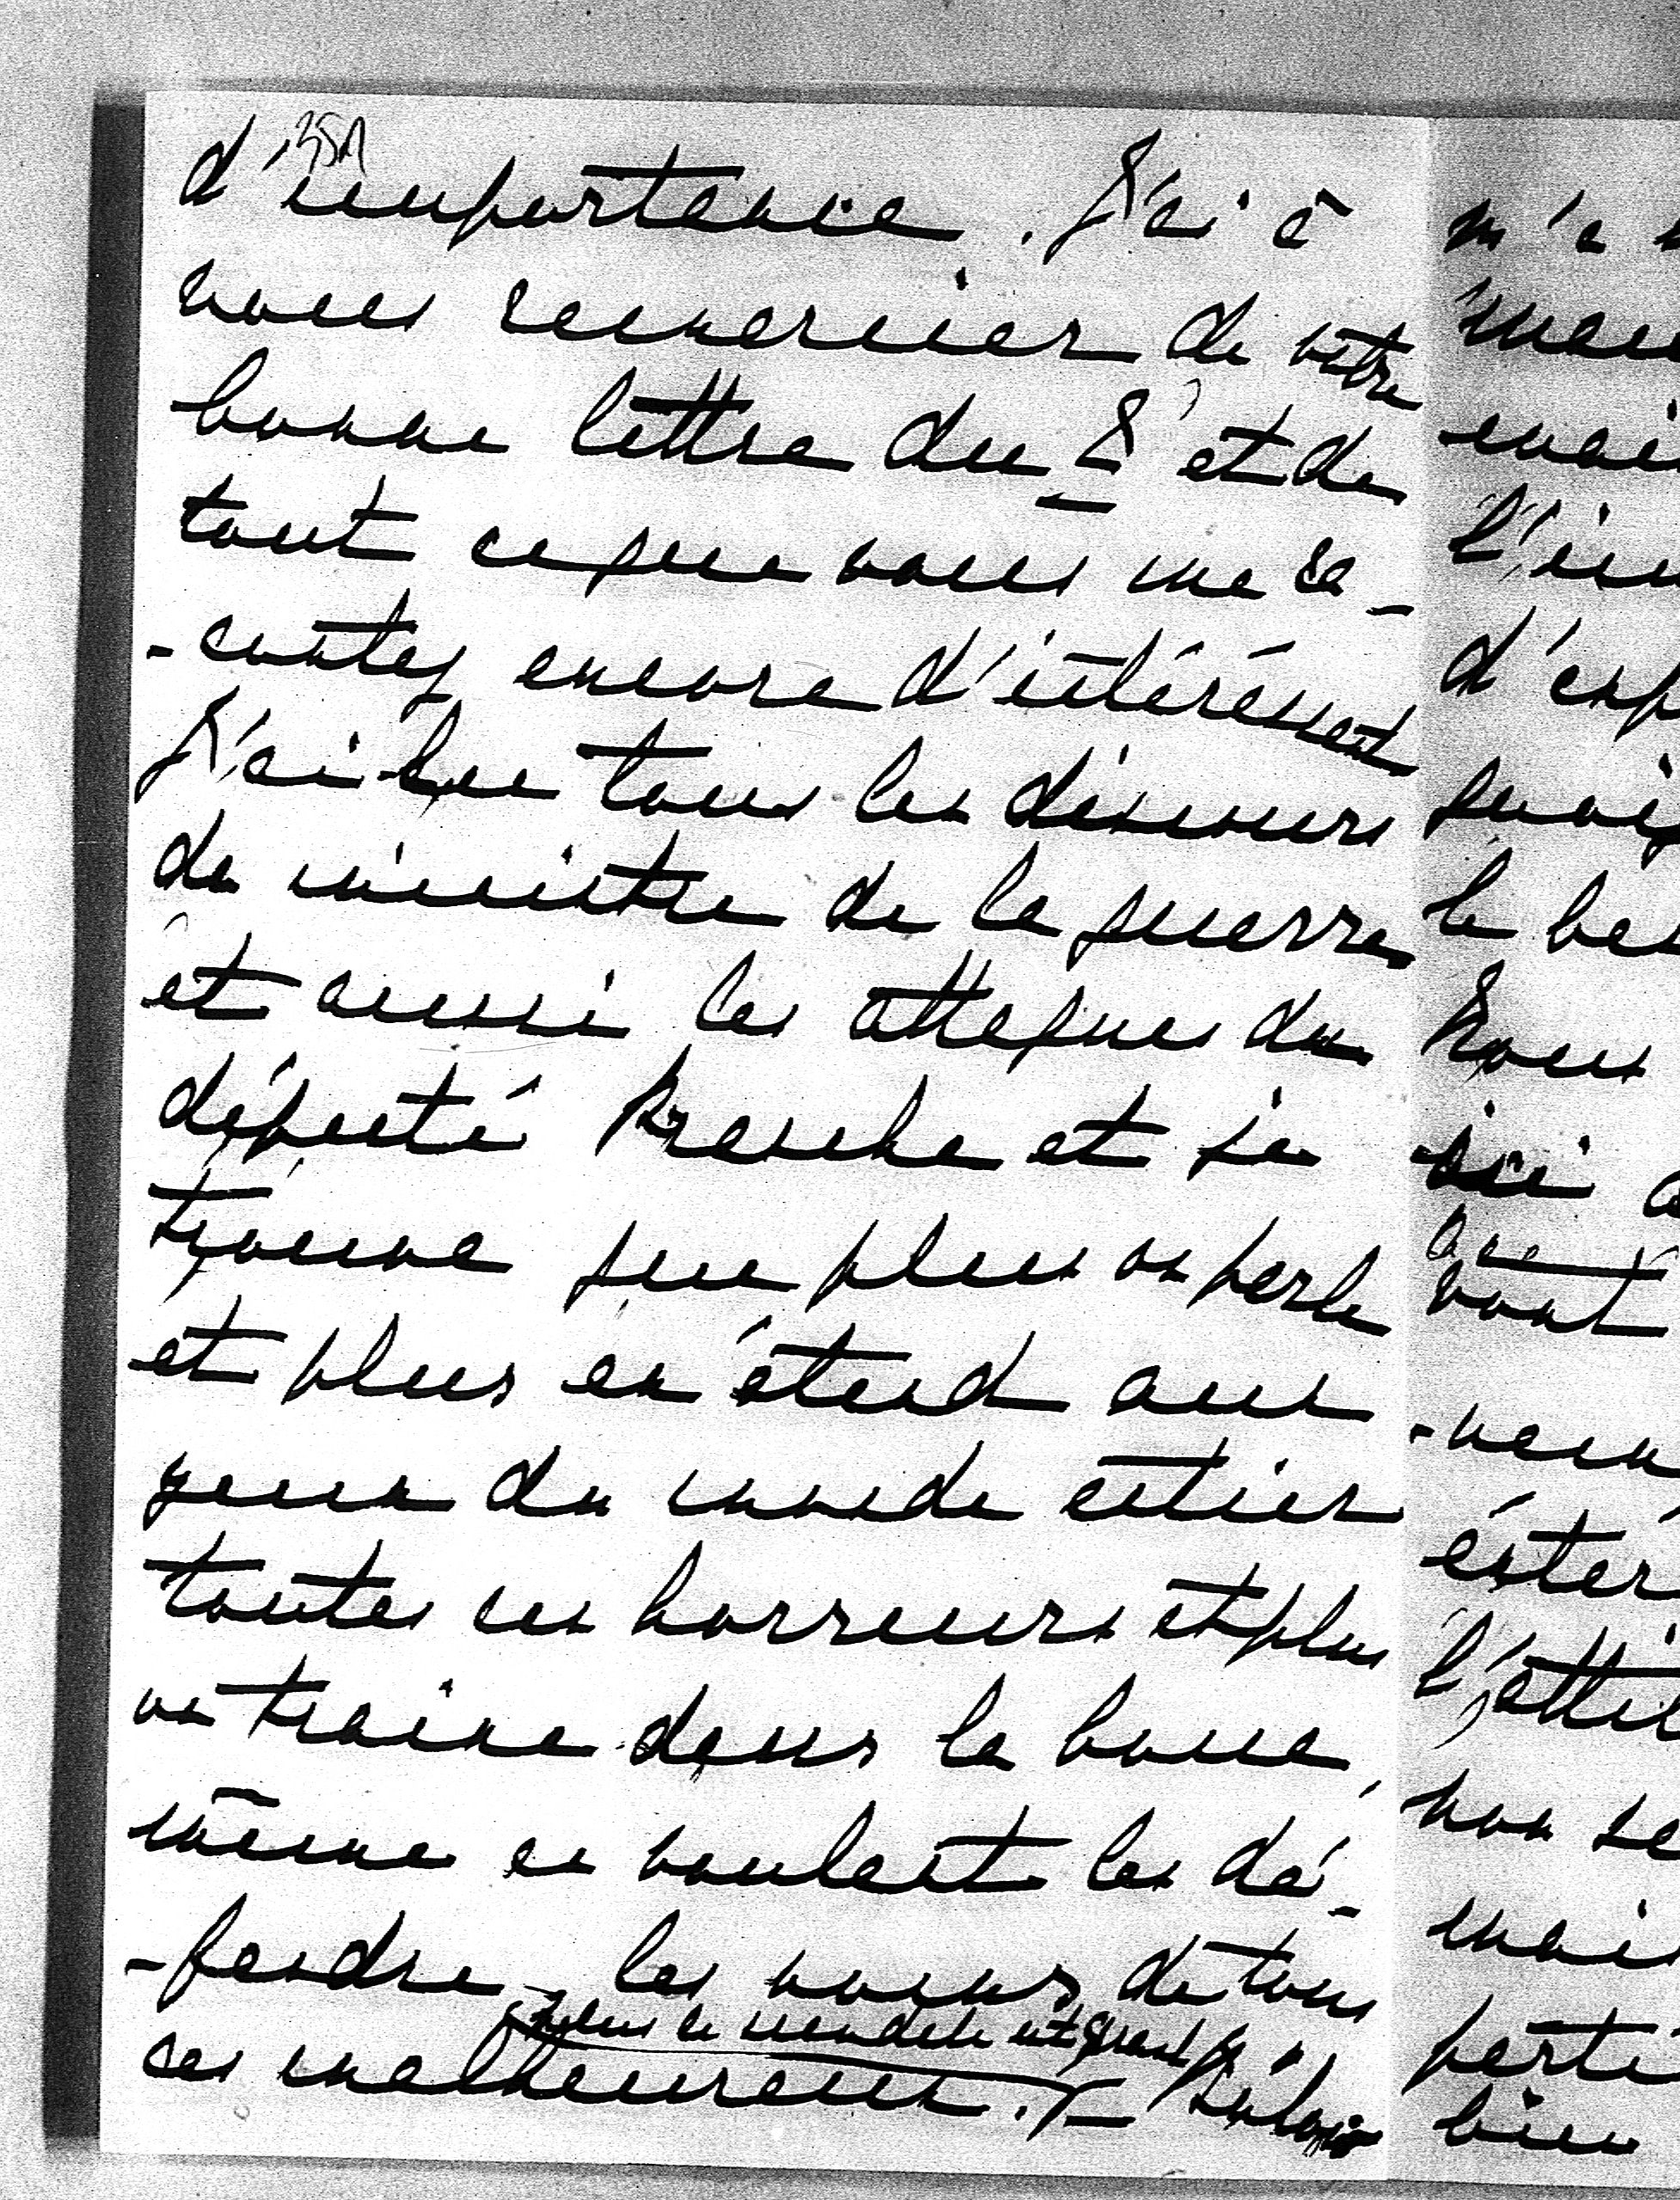 d'importance. J'ai à
vous remercier de votre
bonne lettre du 8 et de
tout ce que vous me ra-
-contez encore d'intéréssant
J'ai lu tous les discours
du ministre de la guerre
et aussi les attaques du
député et je
trouve que plus on parle
et plus on étend aux
yeux du monde entier
toutes ces horreurs et plus
on traine dans la boue,
même en voulant les dé-
-fendre les noms de tous
plus le scandale est grand
ces malheureux.
m'a
d'esp
le
Nous
ici
vont
l'atti
non se
mais
parti
bien